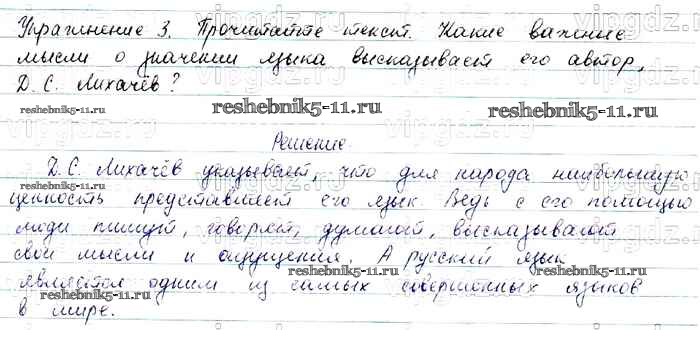 Упражнение 3. Прочитайте текст. Какие важные
мысли о значении языка высказывает его автор,
Д. С. Лихачёв?
reshebnik5-11.ru reshebnik5-11.ru
Решение
Д. С. Лихачёв указывает, что для народа наибольшую
ценность представляет его язык. Ведь с его помощью
люди пишут, говорят, думают, высказывают
свои мысли и ощущения. А русский язык
является одним из самых совершенных языков
reshebnik5-11.ru reshebnik5-11.ru
в мире.